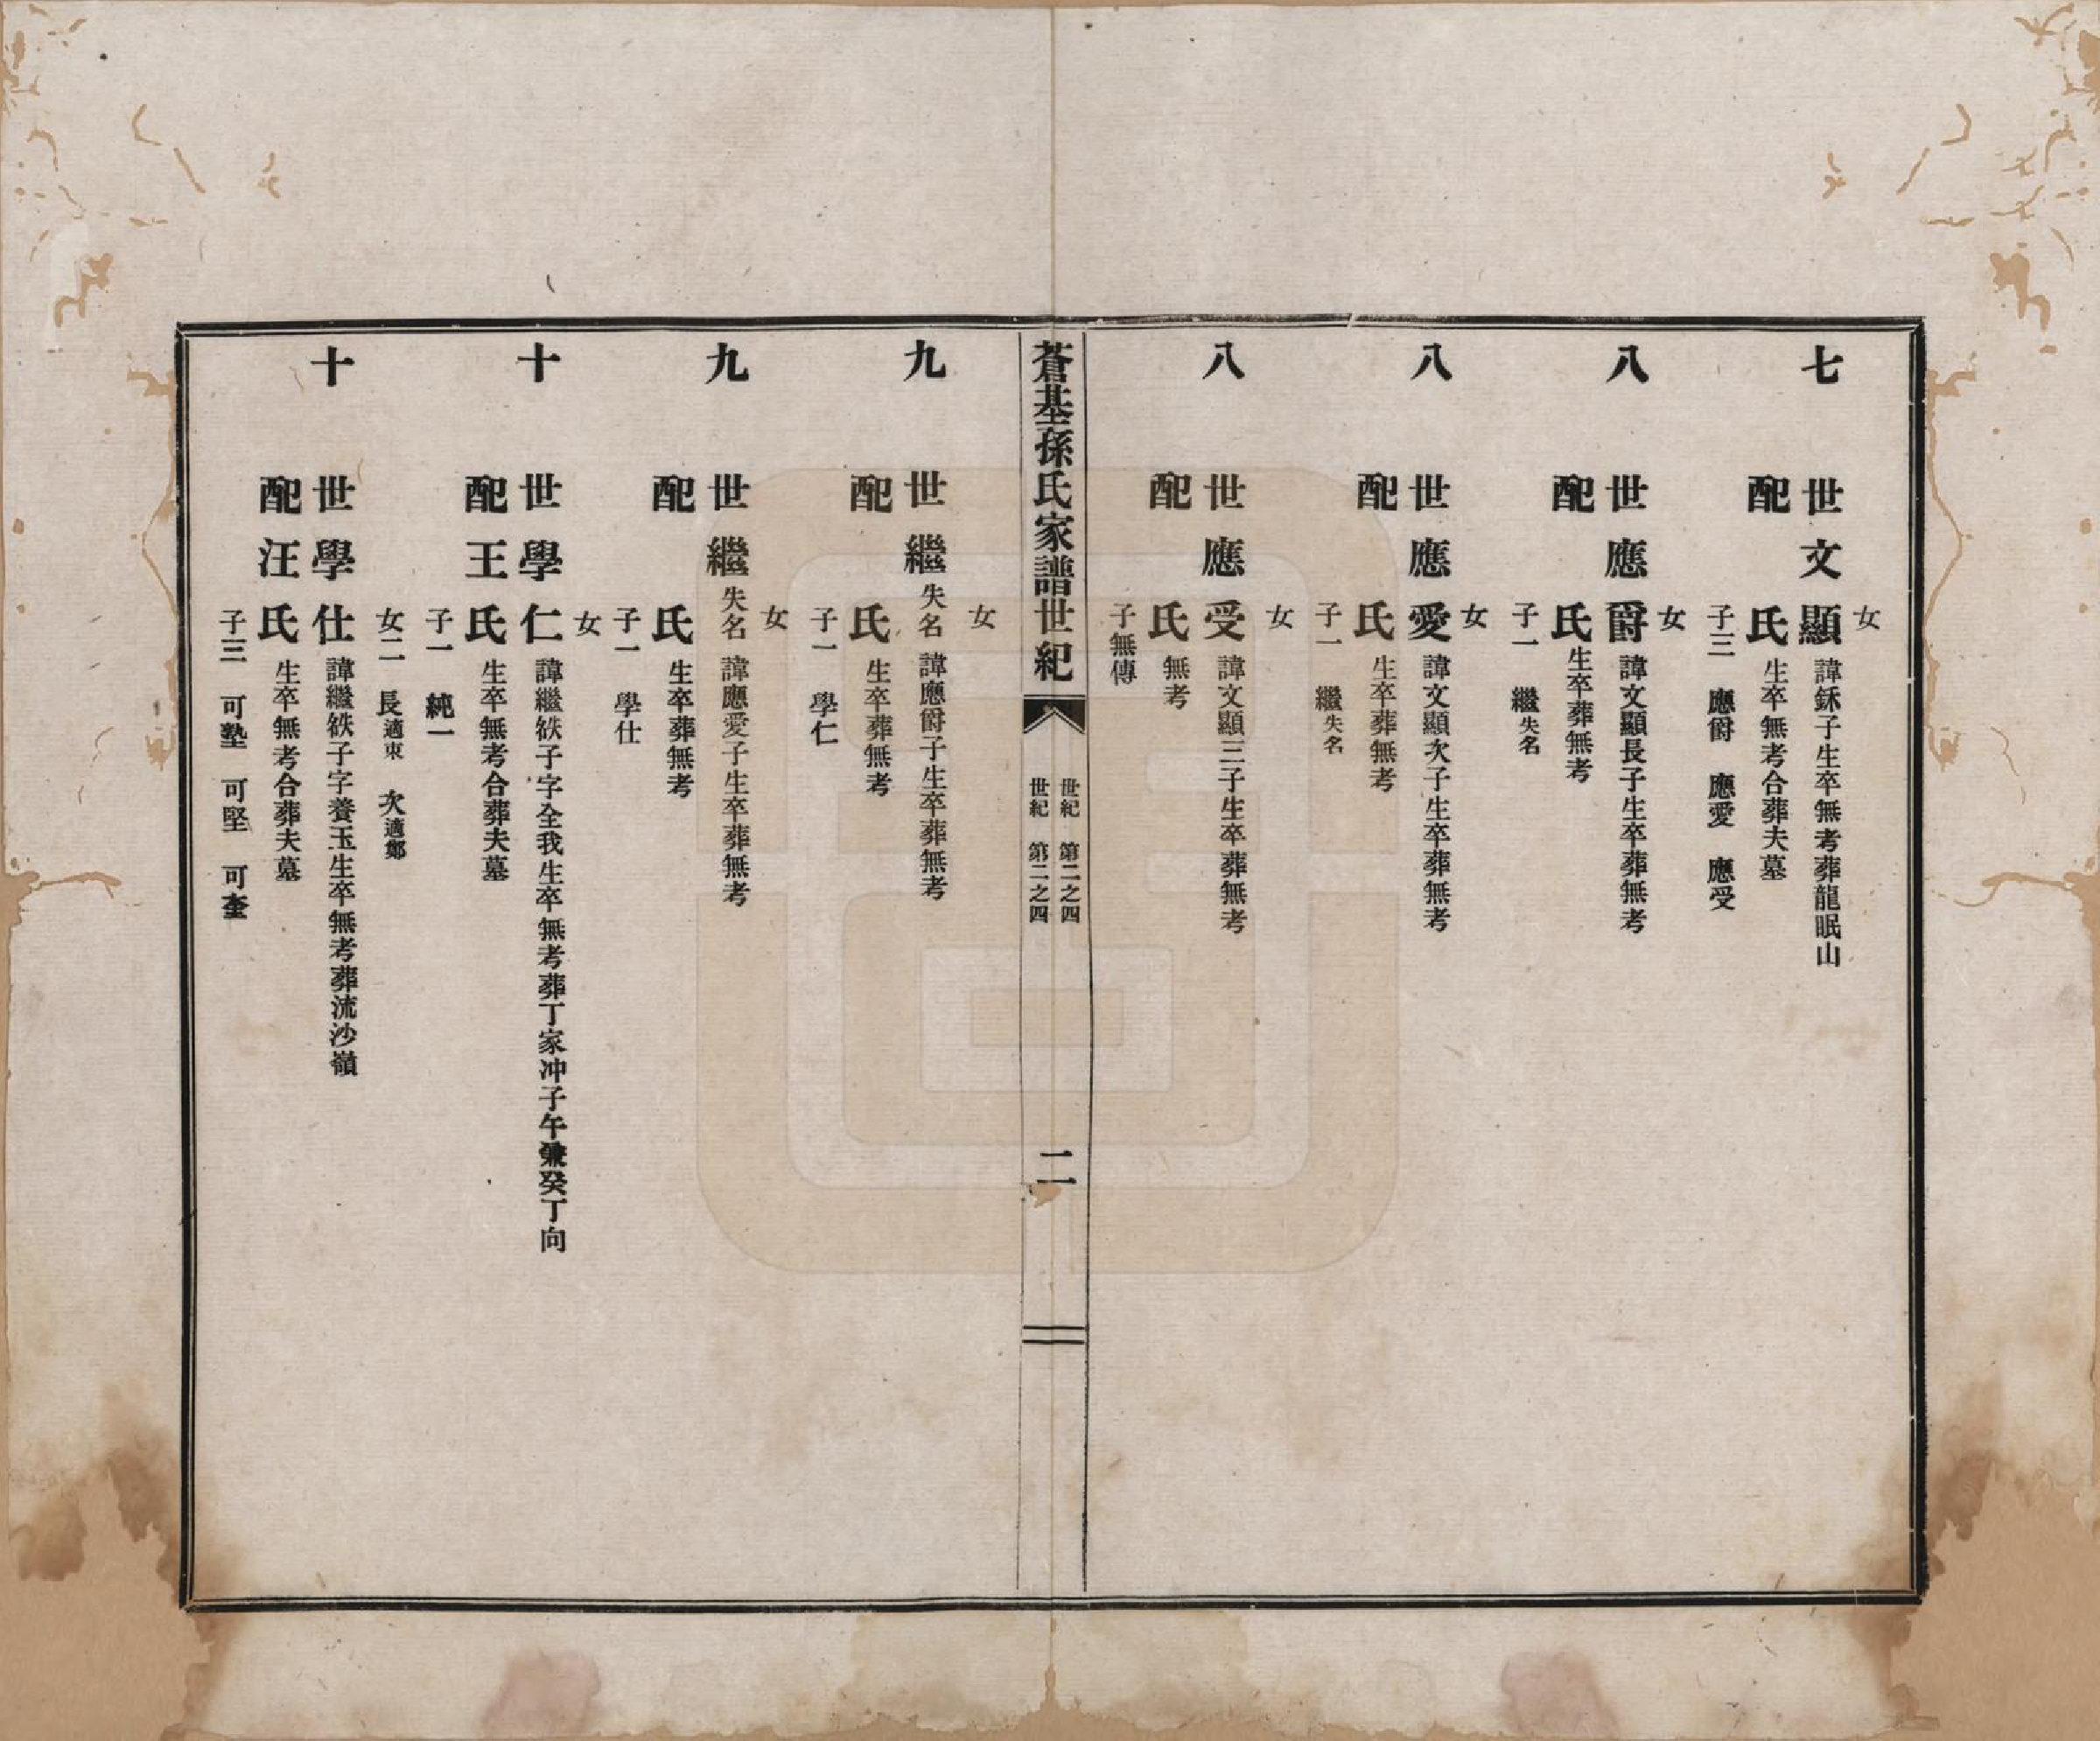 女
七　世文顯諱銤子生卒無考葬龍眠山
配　氏生卒無考合葬夫墓
子三　應爵　應愛　應受
女
八　世應爵諱文顯長子生卒葬無考
配　氏生卒葬無考
子一　繼失名
女
八　世應愛諱文顯次子生卒葬無考
配　氏生卒葬無考
子一　繼失名
女
八　世應受諱文顯三子生卒葬無考
配　氏無考
子無傳
蒼基孫氏家譜世紀
世紀　第二之四
世紀　第二之四
二
女
九　世繼失名諱應爵子生卒葬無考
配　氏生卒葬無考
子一　學仁
女
九　世繼失名諱應愛子生卒葬無考
配　氏生卒葬無考
子一　學仕
女
十　世學仁諱繼子字全我生卒無考葬丁家冲子午兼癸丁向
配王氏生卒無考合葬夫墓
子一　純一
女二　長適東　次適鄭
十　世學仕諱繼子字養玉生卒無考葬流沙嶺
配汪氏生卒無考合葬夫墓
子三　可塾　可堅　可奎